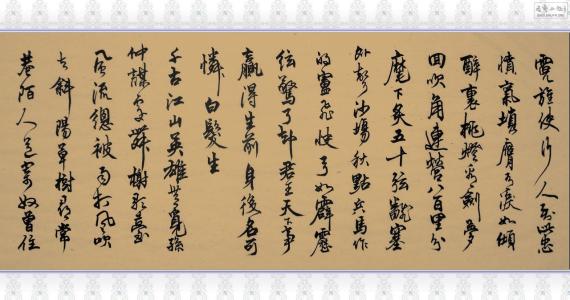 霓旌使行人到此忠
憤氣填膺有淚如傾
醉裏挑燈看劍夢
回吹角連營八百里分
麾下炙五十弦翻塞
外聲沙場秋點兵馬作
的盧飛快弓如霹靂
弦驚了卻君王天下事
贏得生前身後名可
憐白髮生
千古江山英雄無覓孫
仲謀處舞榭歌臺
風流總被雨打風吹
去斜陽草樹尋常
巷陌人道寄奴曾住